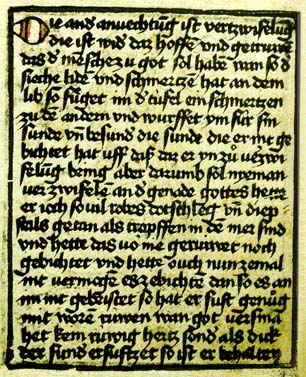 Die and anvechtūg ist vertzwifelūg
die ist wid daz hoffē vnd getruwē
das d mēsche zu got sol habē wan so d
sieche lidē vnd schmertzē hat an dem
lib so fuget im d tufel ein schmertzen
zu dē andern vnd wurffet ym für sin
sunde vñ besund die sunde die er nit ge
bichtet hat vff daß daz er yn zů vezwi
felūg bring aber darumb sol nieman
verzwifelē an gerade gottes hette
er ioch so vil totes dotschleg vñ diep
stals getan als tropffen in dē mer sind
vnd hette das vo me geruwet noch
gebichtet vnd hette ouch nun zemal
nit vermoge es ze bichtē dan so es an
im nit gebristet so hat er sust genūg
mit worem ruwen wan got versma
het kein ruwig hertz sond als dick
der sund ersufftzet so ist er behaltē